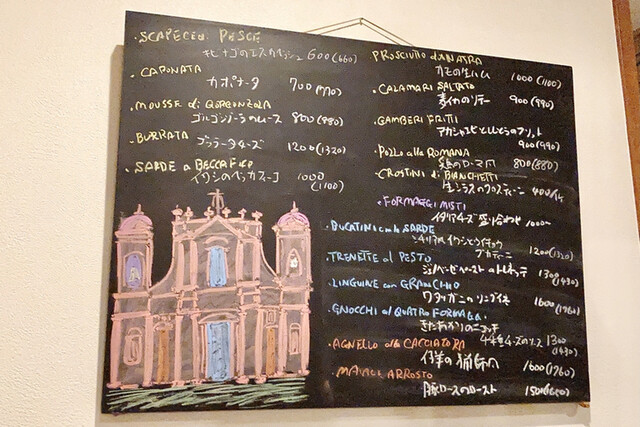 ・SCAPECE di PESCE
キビナゴのエスカベッシュ 600(660)
・CAPONATA
カポナータ 700(770)
・MOUSSE di GORGONZOLA
ゴルゴンゾーラのムース 800(880)
・BURRATA
ブッラータチーズ 1200(1320)
・SARDE a BECCAFICO
イワシのベッカフィーコ 1000
(1100)
PROSCIUTTO d'ANATRA
カモの生ハム 1000(1100)
・CALAMARI SALTATO
麦イカのソテー 900(990)
・GAMBERI FRITTI
アカシャエビと
900(990)
・POLLO alla ROMANA
鶏のローマ風 800(880)
・CROSTINI di BIANCHETTI
生シラスのクロスティーニ 400/1ケ
・FORMAGGI MISTI
イタリアチーズ盛り合わせ 1000〜
・BUCATINI con le SARDE
シチリア風イワシとウイキョウ
ブカティーニ 1200(1320)
・TRENETTE al PESTO
ジェノベーゼペーストのトレネッテ 1300
(1430)
・LINGUINE con GRANCHIO
ワタリガニのリングイネ 1600(1760)
・GNOCCHI al QUATRO FORMAGGI
きたあかりのニョッキ
4種チーズのソース 1300
(1430)
・AGNELLO alla CACCIATORA
仔羊の猟師風 1600(1760)
・MAIALE ARROSTO
豚ロースのロースト 1500(1650)